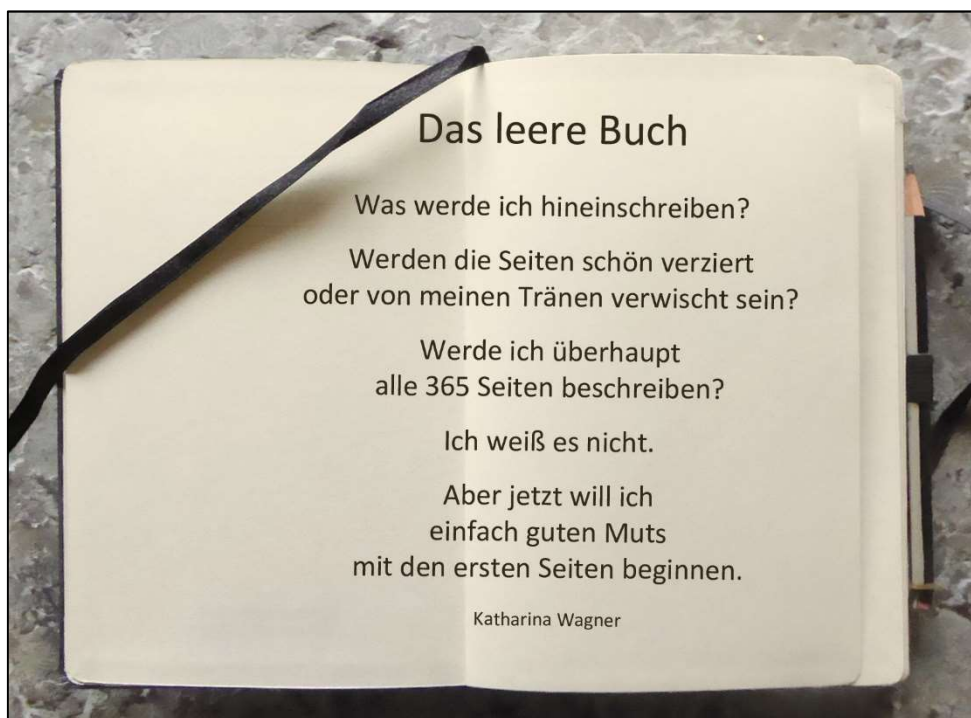 Das leere Buch
Was werde ich hineinschreiben?
Werden die Seiten schön verziert
oder von meinen Tränen verwischt sein?
Werde ich überhaupt
alle 365 Seiten beschreiben?
Ich weiß es nicht.
Aber jetzt will ich
einfach guten Muts
mit den ersten Seiten beginnen.
Katharina Wagner